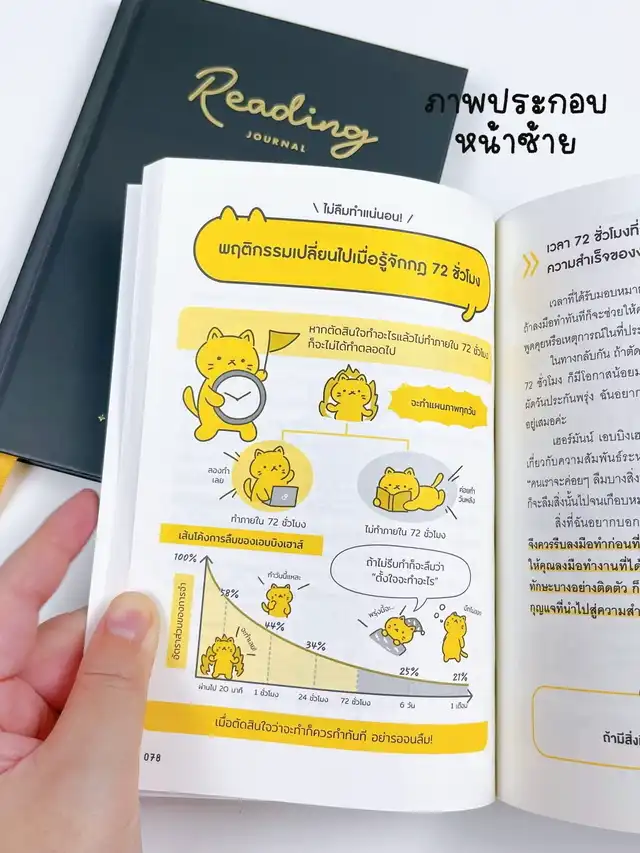 Reading
JOURNAL
ภาพประกอบ
หน้าซ้าย
\ ไม่ลืมทำแน่นอน! /
พฤติกรรมเปลี่ยนไปเมื่อรู้จักกฎ 72 ชั่วโมง
หากตัดสินใจทำอะไรแล้วไม่ทำภายใน 72 ชั่วโมง
ก็จะไม่ได้ทำตลอดไป
จะทำแผนภาพทุกวัน
ลองทำ
เลย
ค่อยทำ
วันหลัง
ทำภายใน 72 ชั่วโมง
ไม่ทำภายใน 72 ชั่วโมง
เส้นโค้งการลืมของเอบบิงเฮาส์
100%
อัตราส่วนของการจำ
58%
44%
34%
25%
21%
ทำวันนี้แหละ
จะทำเลย!
ถ้าไม่รีบทำก็จะลืมว่า
"ตั้งใจจะทำอะไร"
พรุ่งนี้จะ...
ผ่านไป 20 นาที
1 ชั่วโมง
24 ชั่วโมง
72 ชั่วโมง
6 วัน
1 เดือน
เมื่อตัดสินใจว่าจะทำก็ควรทำทันที อย่ารอจนลืม!
078
เวลา 72 ชั่วโมงที่
ความสำเร็จของง
เวลาที่ได้รับมอบหมาย
ถ้าลงมือทำทันทีก็จะช่วยให้ค
พูดคุยหรือเหตุการณ์ในที่ประ
ในทางกลับกัน ถ้าตัด
72 ชั่วโมง ก็มีโอกาสน้อยม
ผัดวันประกันพรุ่ง ฉันอยาก
อยู่เสมอค่ะ
เฮอร์มันน์ เอบบิงเฮ
เกี่ยวกับความสัมพันธ์ระห
"คนเราจะค่อยๆ ลืมบางสิ่ง
ก็จะลืมสิ่งนั้นไปจนเกือบหม
สิ่งที่ฉันอยากบอก
จึงควรรีบลงมือทำก่อนที่
ให้คุณลงมือทำงานที่ได้
ทักษะบางอย่างติดตัว ก็
กุญแจที่นำไปสู่ความสำ
ถ้ามีสิ่ง